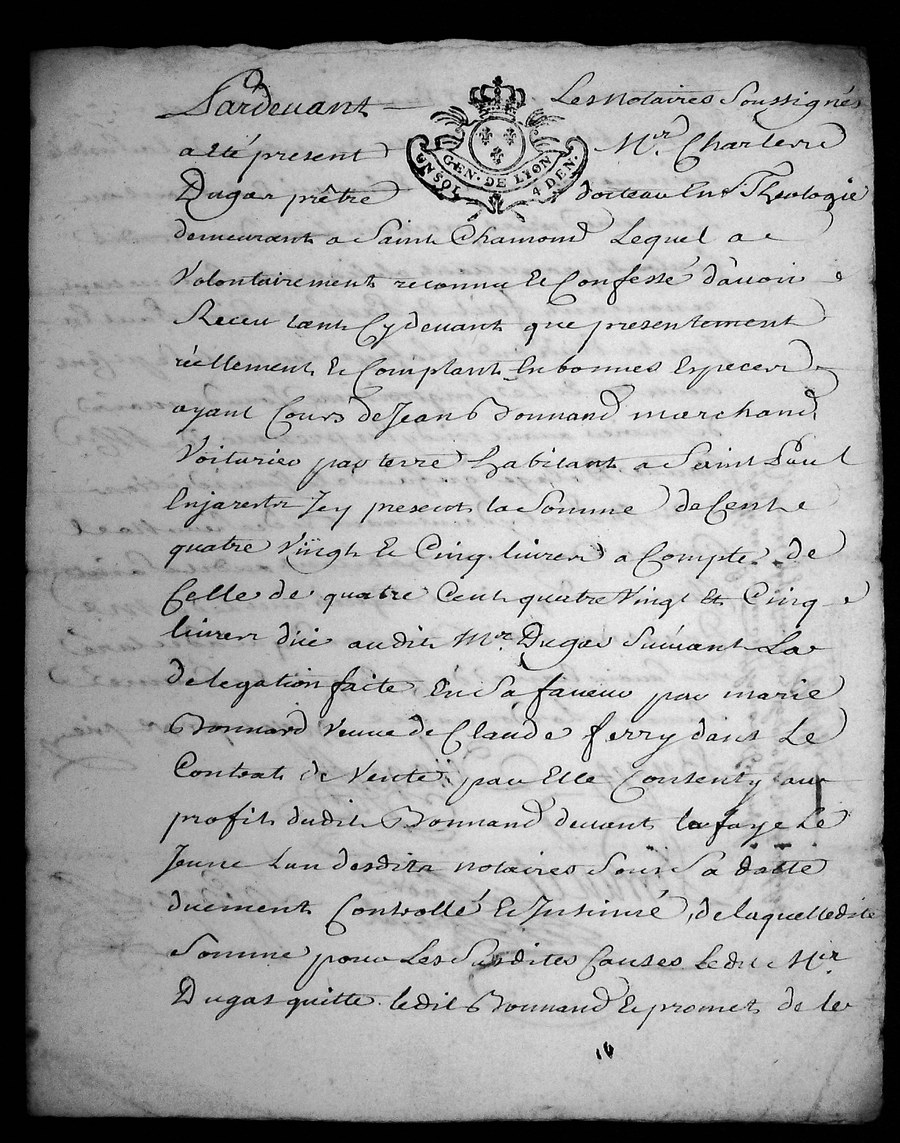 Pardevant Les notaires Soussignés
a eté present Mr. Charle
Dugas prêtre docteau En Theologie
demeurant a Saint Chamond Lequel a
Volontairement reconnu Et Confessé d'avoir
Receu tant Cydevant que presentement
réellement Et Comptant En bonnes Especes
ayant Cours de Jean Bonnand marchand
Voiturier par terre habitant a Saint Paul
Enjarest Icy present la Somme de Cent
quatre Vingt Et Cinq livres a Compte de
Celle de quatre Cent quatre Vingt Et Cinq
livres düe audit Mr. Dugas Suivant La
delegation faite En Sa faveur par marie
Bonnard Veuve de Claude ferry dans Le
Contrat de Vente par Elle Consenty au
profit dudit Bonnand devant lafaye Le
Jeune L'un desdits notaires Sous Sa datte
duement Controllé Et Insinué, de laquelledite
Somme pour Les Susdites Causes Ledit Mr
Dugas quitte ledit Bonnand Et promet de le
GEN. DE LYON
UN SOL 4 DEN.